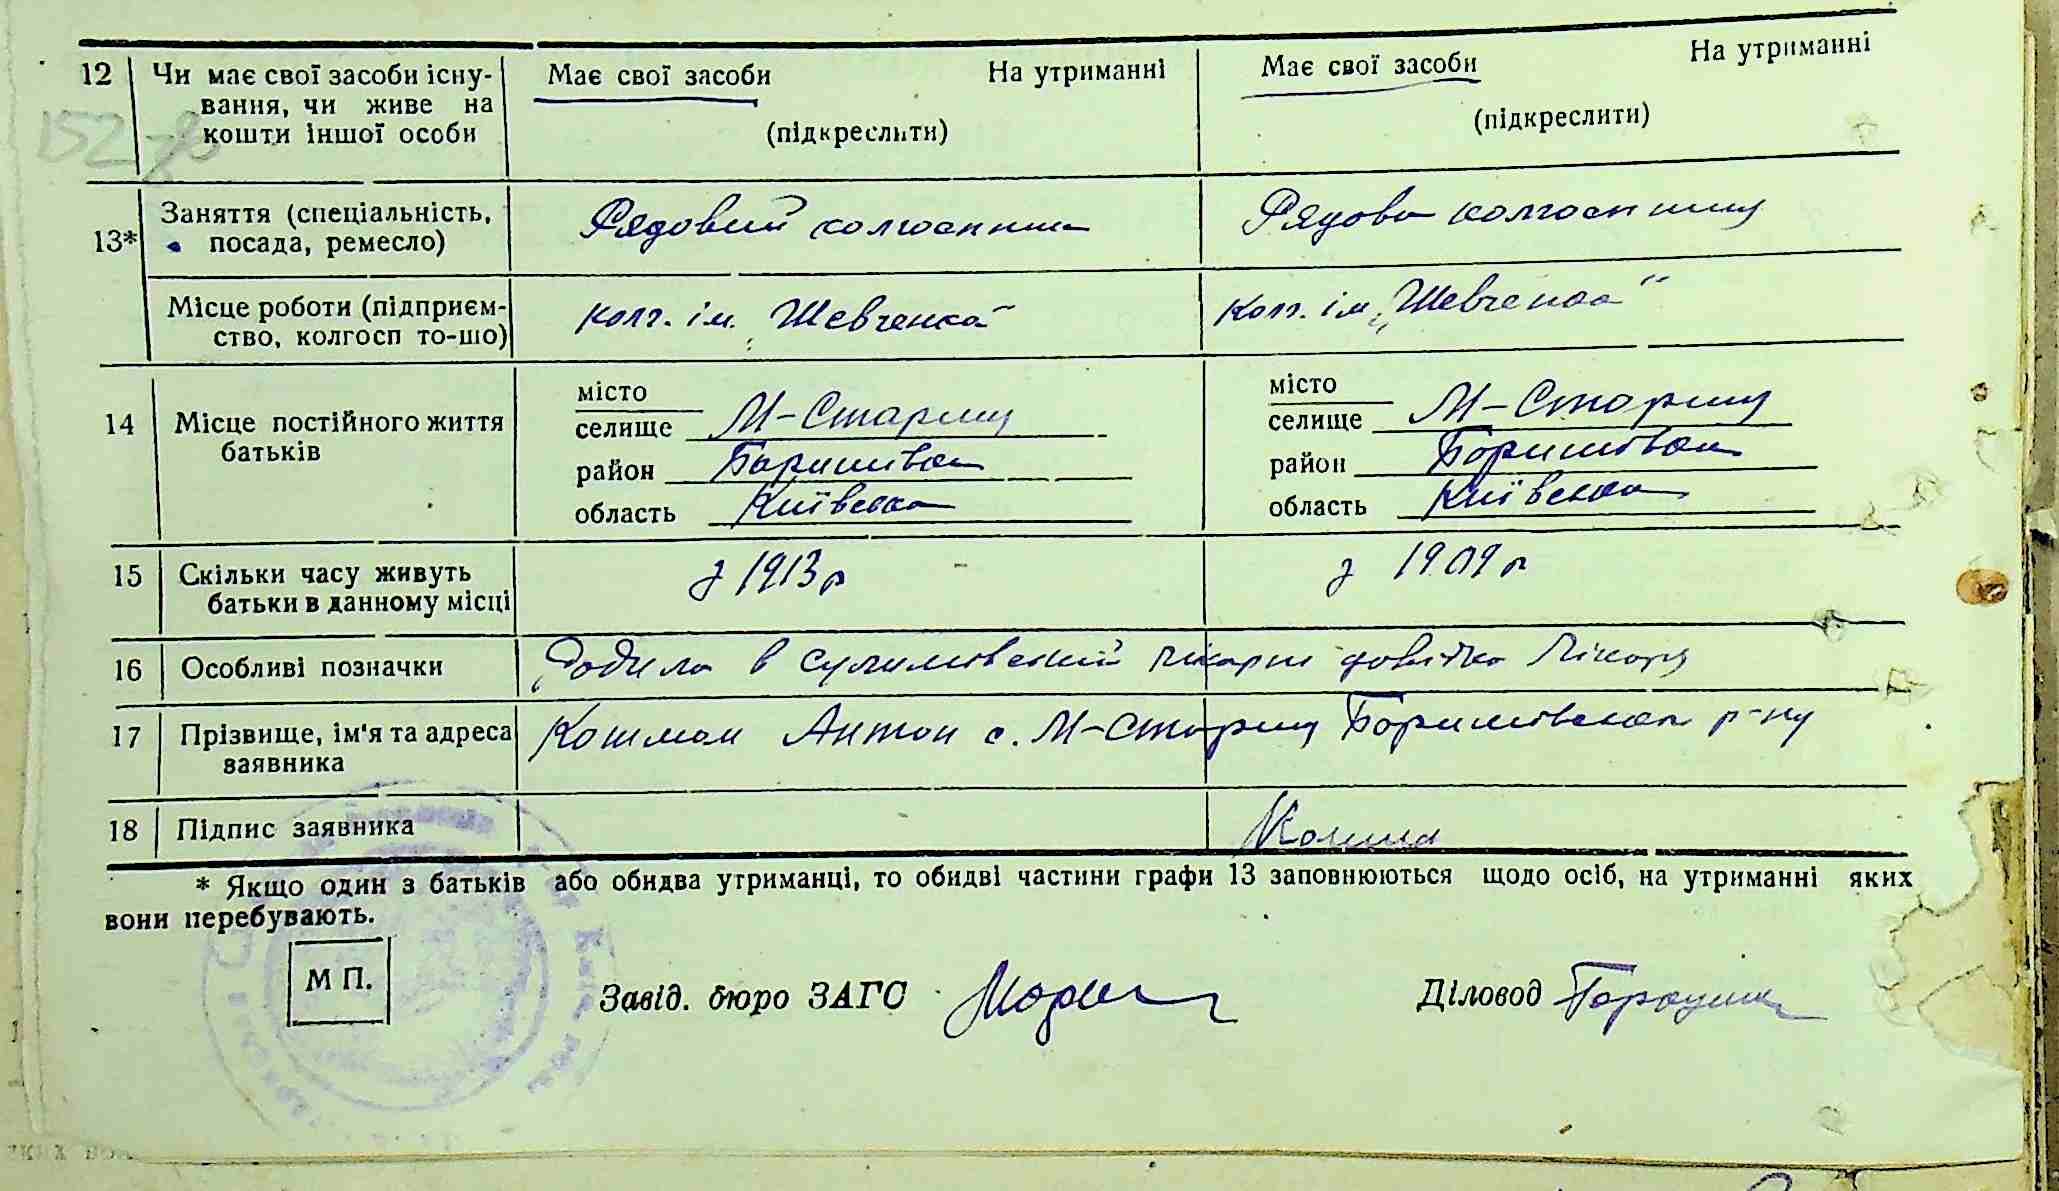 12 Чи має свої засоби існу-
вання, чи живе на
кошти іншої особи
Має свої засоби На утриманні
(підкреслити)
Має свої засоби На утриманні
(підкреслити)
13* Заняття (спеціальність,
посада, ремесло)
Рядовий колгоспник
Рядова колгоспниця
Місце роботи (підприєм-
ство, колгосп то-що)
колг. ім. „Шевченка"
Колг. ім. „Шевченка"
14 Місце постійного життя
батьків
місто
селище М-Стариця
район Баришівськ
область Київська
місто
селище М-Стариця
район Баришівськ
область Київська
15 Скільки часу живуть
батьки в данному місці
з 1913 р
з 1909 р
16 Особливі позначки
Родила в сулимівській лікарні довідка лікаря
17 Прізвище, ім'я та адреса
заявника
Кошман Антон с. М-Стариця Баришівськ р-ну
18 Підпис заявника
* Якщо один з батьків або обидва утриманці, то обидві частини графи 13 заповнюються щодо осіб, на утриманні яких
вони перебувають.
М П.
Завід. бюро ЗАГС
Діловод